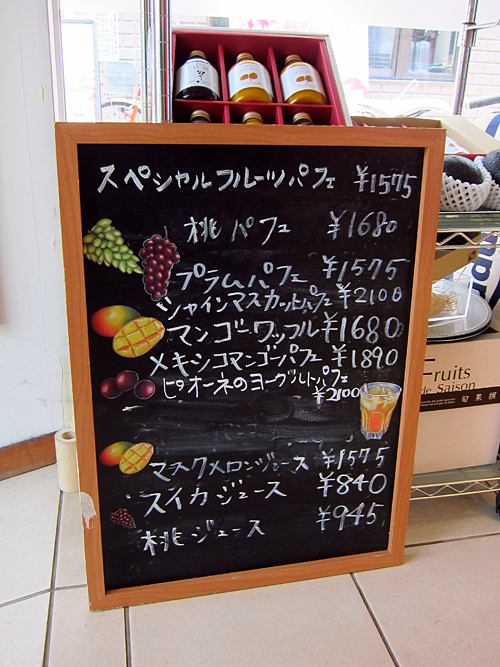 スペシャルフルーツパフェ ¥1575
桃パフェ ¥1680
プラムパフェ ¥1575
シャインマスカットパフェ ¥2100
マンゴーワッフル ¥1680
メキシコマンゴーパフェ ¥1890
ピオーネのヨーグルトパフェ
¥2100
マスクメロンジュース ¥1575
スイカジュース ¥840
桃ジュース ¥945
Fruits
de Saison
旬果撰